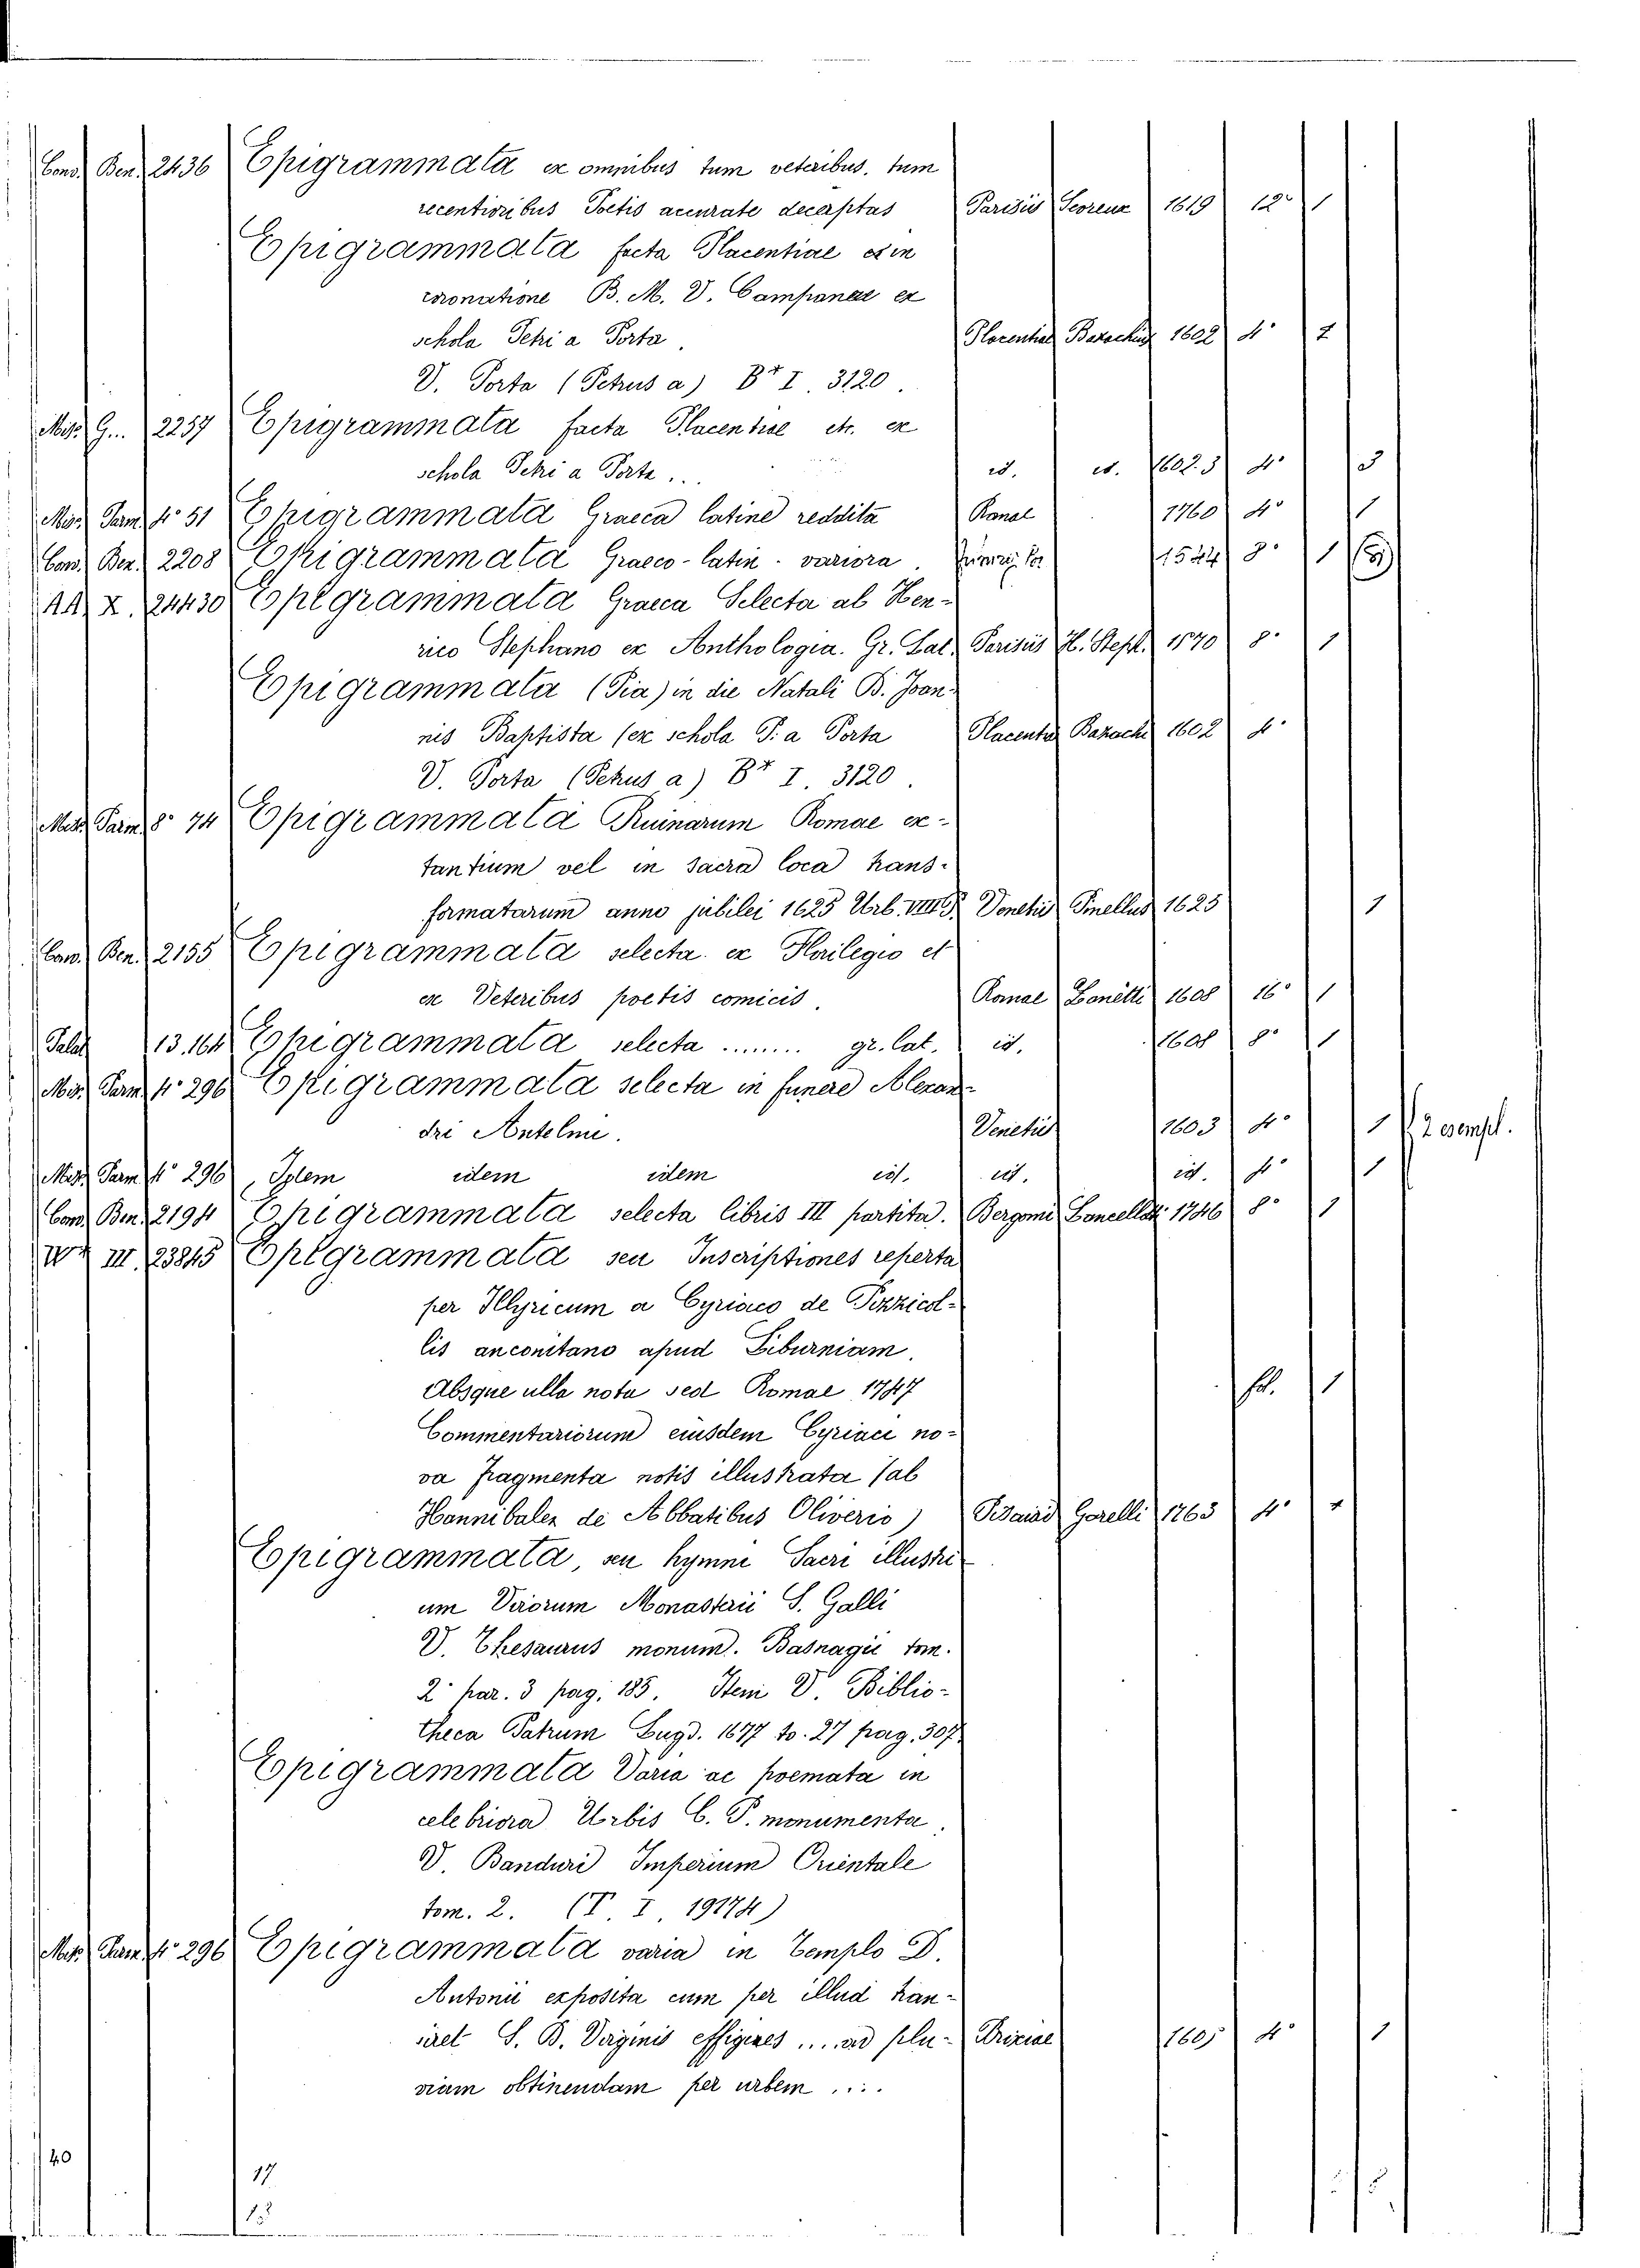 Cons. Ben. 2436 Epigrammata ex omnibus tum veteribus, tum
recentioribus Poetis accurate decerptas Parisiis Seoreux 1619 12° 1
Epigrammata facta Placentiae et in
coronatione B. M. V. Campanae ex
schola Petri a Porta. Placentiae Bazachius 1602 4° 2
V. Porta (Petrus a) B* I. 3120.
Misc. G.. 2257 Epigrammata facta Placentiae etc. ex
schola Petri a Porta... id. id. 1602.3 4° 3
Misc. Parm. 4° 51 Epigrammata Graeca latine reddita Romae 1760 4° 1
Cons. Ben. 2208 Epigrammata Graeco-latin. variora. 1544 8° 1
AA X. 24430 Epigrammata Graeca Selecta ab Hen-
rico Stephano ex Anthologia. Gr. Lat. Parisiis H. Steph. 1570 8° 1
Epigrammata (Pia) in die Natali B. Joan-
nis Baptista (ex schola P. a Porta Placentiae Bazachi 1602 4°
V. Porta (Petrus a) B* I. 3120.
Misc. Parm. 8° 74 Epigrammata Ruinarum Romae ex-
tantium vel in sacra loca trans-
formatarum anno jubilei 1625 Urb. VIII P. Venetiis Pinellus 1625 1
Cons. Ben. 2155 Epigrammata selecta ex Florilegio et
ex Veteribus poetis comicis. Romae Zanetti 1608 16° 1
Palat 13.164 Epigrammata selecta ....... gr. lat. id. 1608 8° 1
Misc. Parm. 4° 296 Epigrammata selecta in funere Alexan-
dri Antelmi. Venetiis 1603 4° 1 2 esempl.
Misc. Parm. 4° 296, Idem idem idem id. id. id. 4° 1
Cons. Ben. 2194 Epigrammata selecta libris III partita. Bergomi Lancellotti 1746 8° 1
III. 23845 Epigrammata seu Inscriptiones reperta
per Illyricum a Cyriaco de Pizzicol-
lis anconitano apud Liburniam.
Absque ulla nota sed Romae 1747 fol. 1
Commentariorum eiusdem Cyriaci no-
va fragmenta notis illustrata (ab
Hannibalen de Abbatibus Oliverio) Pisauri Gavelli 1763 4°
Epigrammata, seu hymni Sacri illustri
um Virorum Monasterii S. Galli
V. Thesaurus monum. Basnagii tom.
2. par. 3 pag. 185. Item V. Biblio-
theca Patrum Lugd. 1677 to. 27 pag. 307
Epigrammata Varia ac poemata in
celebriora Urbis C. P. monumenta.
V. Banduri Imperium Orientale
tom. 2. (T. I. 19174)
Misc. Parm. 4° 296 Epigrammata varia in Templo D.
Antonii exposita cum per illud tran-
siret S. B. Virginis effigies .... ad plu- Brixiae 1605 4° 1
viam obtinendam per urbem ....
40
17